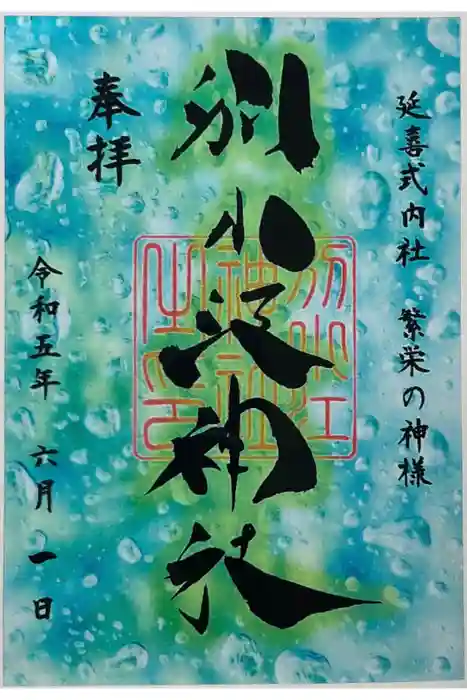 延喜式内社 繁栄の神様
別小江神社
奉拝
令和五年 六月 一日
別小江
神社
之印